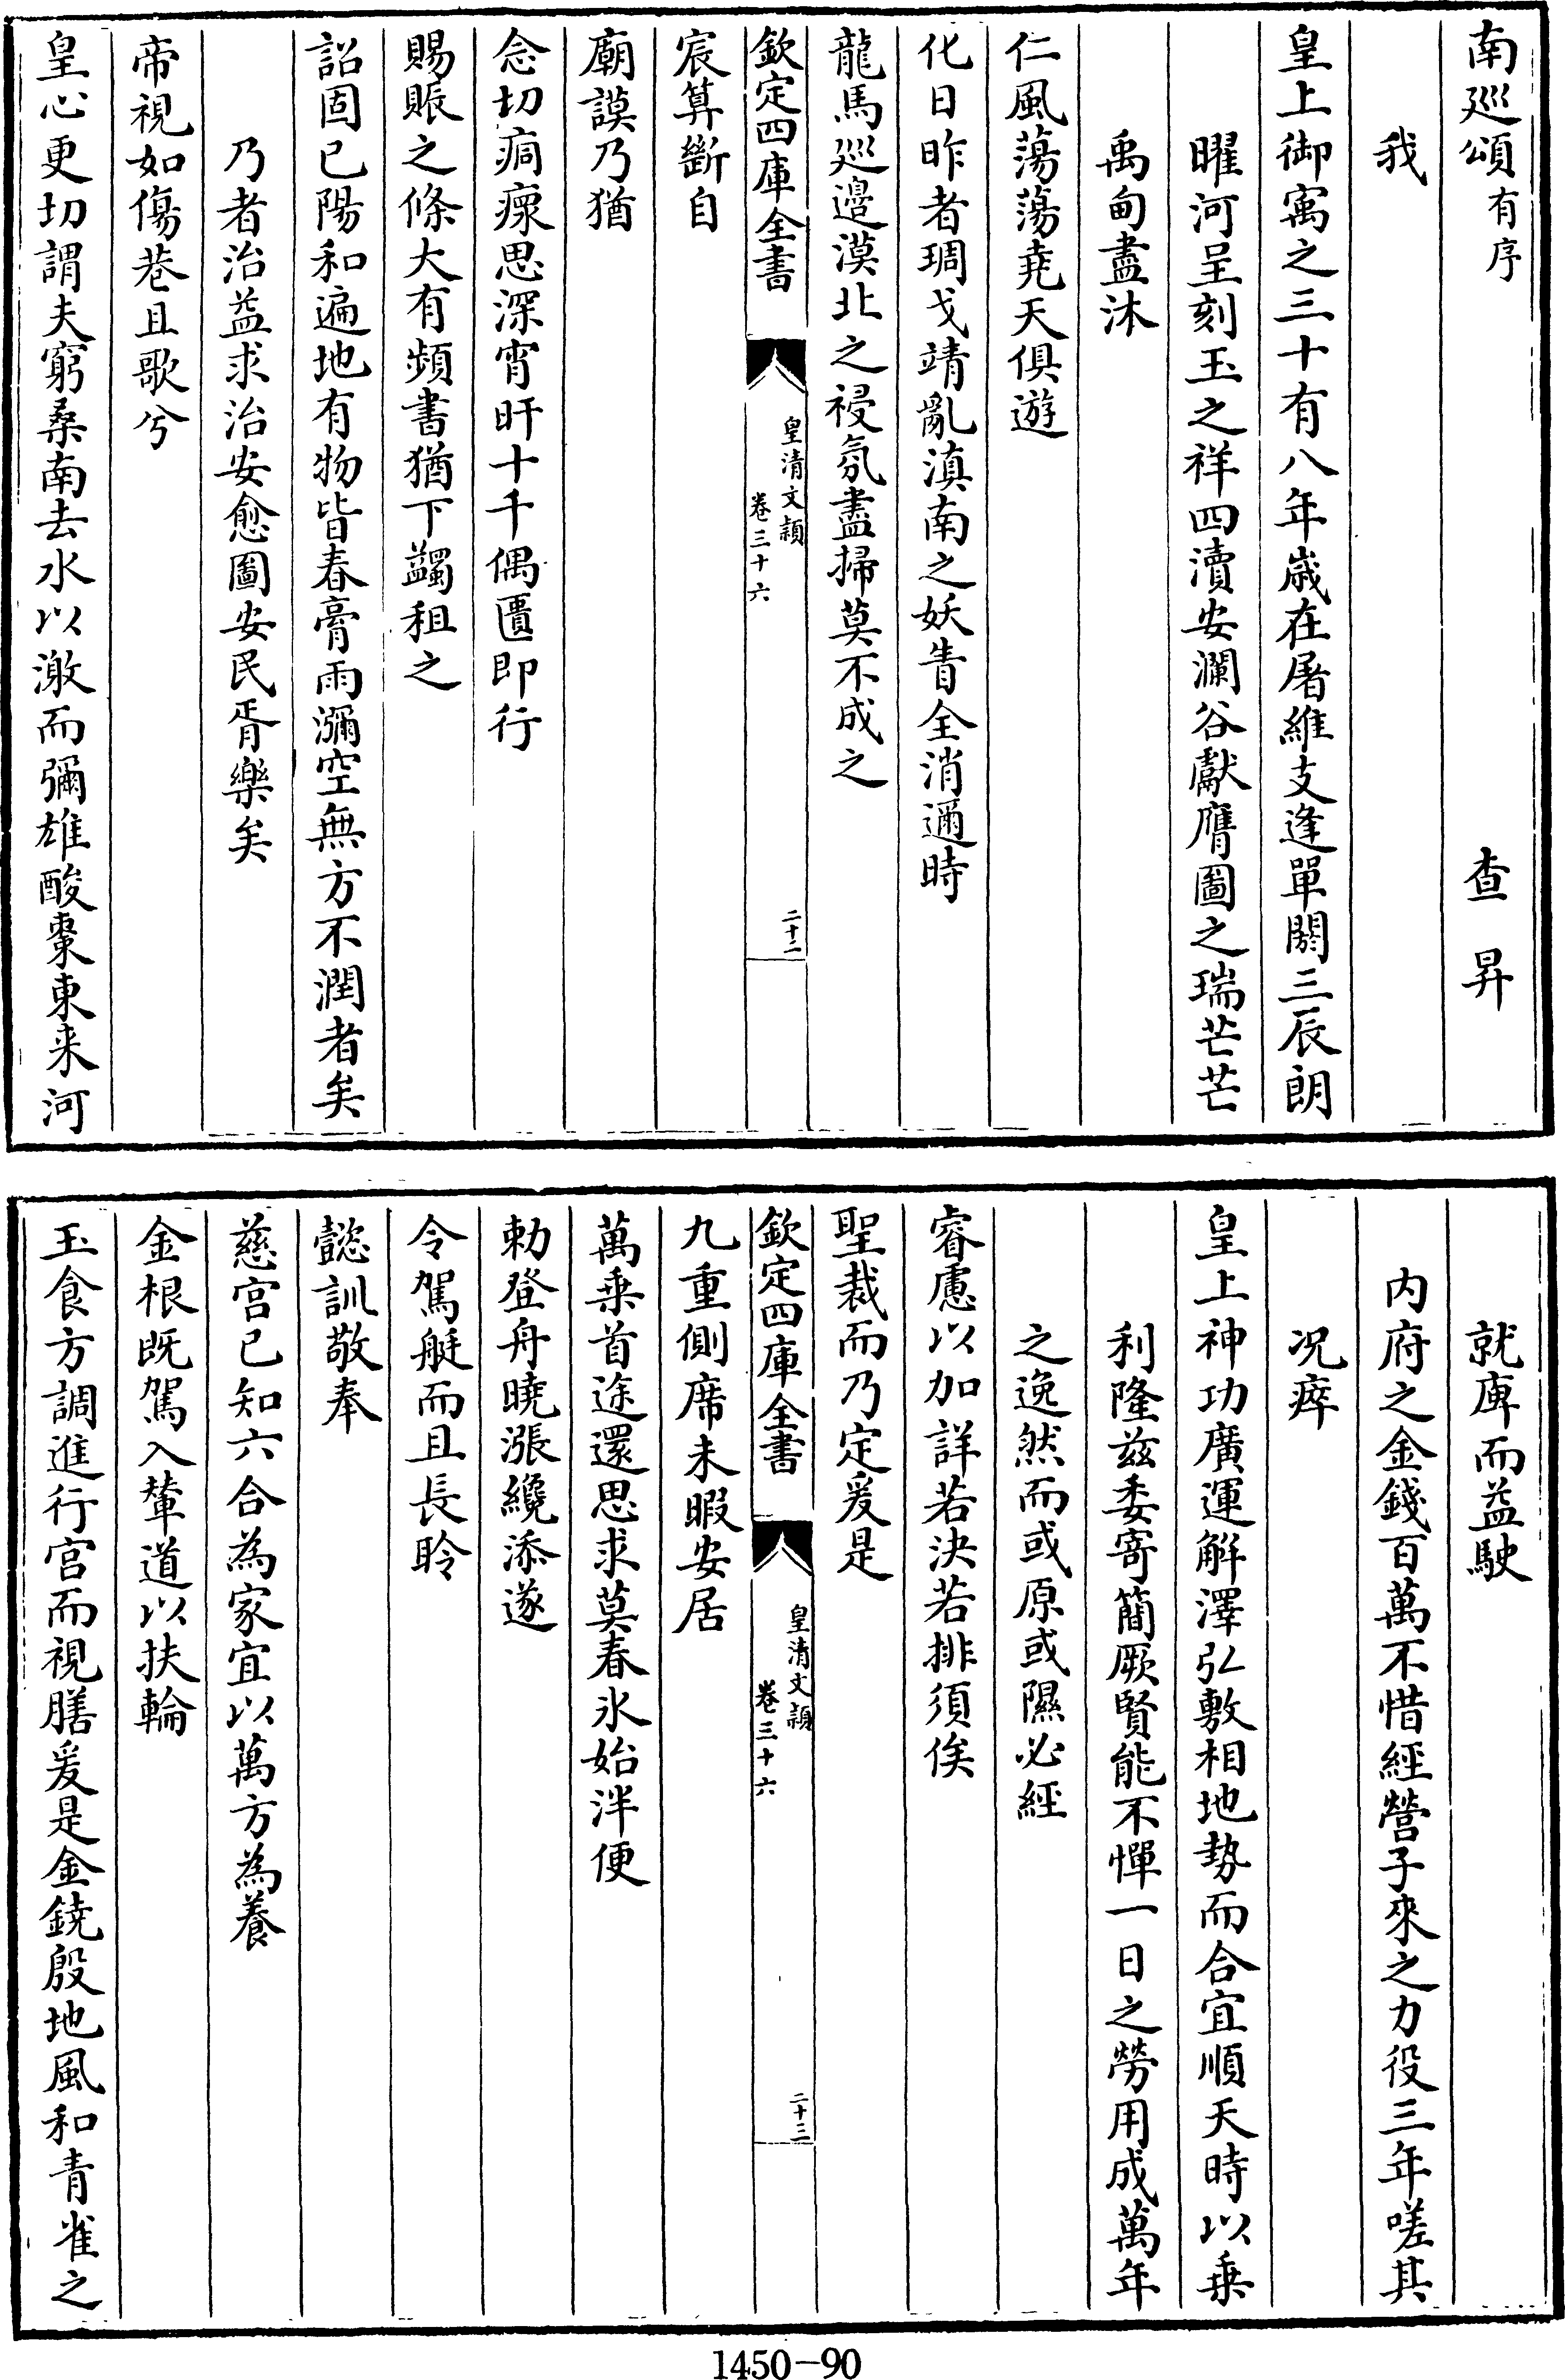 南巡頌有序 查昇
我
皇上御㝢之三十有八年歲在屠維支逢單閼三辰朗
曜河呈刻玉之祥四瀆安瀾谷獻膺圖之瑞芒芒
禹甸盡沐
仁風蕩蕩堯天俱遊
化日昨者琱戈靖亂滇南之妖眚全消邇時
龍馬巡邊漠北之祲氛盡掃莫不成之
欽定四庫全書
皇清文穎
卷三十六
二十二
宸算斷自
廟謨乃猶
念切痌瘝思深宵旰十千偶匱即行
賜賑之條大有頻書猶下蠲租之
詔固已陽和遍地有物皆春膏雨瀰空無方不潤者矣
乃者治益求治安愈圖安民胥樂矣
帝視如傷巷且歌兮
皇心更切謂夫窮桑南去水以潡而彌雄酸棗東来河
就庳而益駛
内府之金錢百萬不惜經營子來之力役三年嗟其
况瘁
皇上神功廣運解澤弘敷相地勢而合宜順天時以乗
利隆兹委寄簡厥賢能不憚一日之勞用成萬年
之逸然而或原或隰必經
睿慮以加詳若決若排須俟
聖裁而乃定爰是
欽定四庫全書
皇清文穎
卷三十六
二十三
九重側席未暇安居
萬乗首途還思求莫春氷始泮便
勅登舟曉漲纔添遂
令駕艇而且長聆
懿訓敬奉
慈宫已知六合為家宜以萬方為養
金根既駕入輦道以扶輪
玉食方調進行宫而視膳爰是金鐃殷地風和青雀之
1450-90